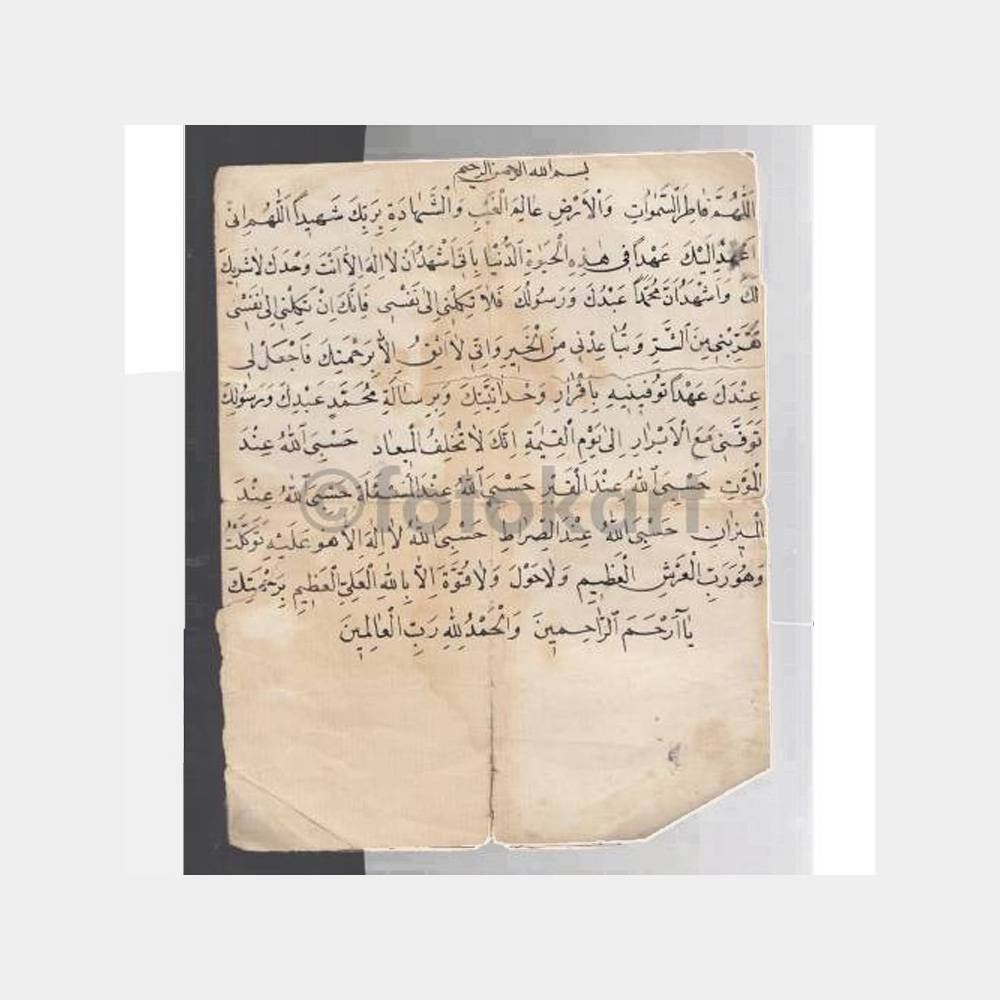 بسم الله الرحمن الرحيم
اَللّٰهُمَّ فَاطِرَ السَّمٰوَاتِ وَالْاَرْضِ عَالِمَ الْغَيْبِ وَالشَّهَادَةِ بِرَبِّكَ شَهِيداً اَللّٰهُمَّ اِنّىِ
اَعْهَدُ اِلَيْكَ عَهْداً فى هٰذِهِ الْحَيٰوةِ الدُّنْيَا بِاَنّىِ اَشْهَدُ اَنْ لَا اِلٰهَ اِلَّا اَنْتَ وَحْدَكَ لَا شَرِيكَ
لَكَ وَاَشْهَدُ اَنَّ مُحَمَّداً عَبْدُكَ وَرَسُولُكَ فَلَا تَكِلْنىِ اِلىٰ نَفْسىِ فَاِنَّكَ اِنْ تَكِلْنىِ اِلىٰ نَفْسىِ
تُقَرِّبْنىِ مِنَ الشَّرِّ وَتُبَاعِدْنىِ مِنَ الْخَيْرِ وَاِنّىِ لَا اَثِقُ اِلَّا بِرَحْمَتِكَ فَاجْعَلْ لىِ
عِنْدَكَ عَهْداً تُوَفِّينِيهِ بِاِقْرَارِ وَحْدَانِيَّتِكَ وَبِرِسَالَةِ مُحَمَّدٍ عَبْدِكَ وَرَسُولِكَ
تَوَفَّنىِ مَعَ الْاَبْرَارِ اِلىٰ يَوْمِ الْقِيٰمَةِ اِنَّكَ لَا تُخْلِفُ الْمِيعَاد حَسْبِىَ اللّٰهُ عِنْدَ
الْمَوْتِ حَسْبِىَ اللّٰهُ عِنْدَ الْقَبْرِ حَسْبِىَ اللّٰهُ عِنْدَ الْمَسْئَلَةِ حَسْبِىَ اللّٰهُ عِنْدَ
الْمِيزَانِ حَسْبِىَ اللّٰهُ عِنْدَ الصِّرَاطِ حَسْبِىَ اللّٰهُ لَا اِلٰهَ اِلَّا هُوَ عَلَيْهِ تَوَكَّلْتُ
وَهُوَ رَبُّ الْعَرْشِ الْعَظِيمِ وَلَا حَوْلَ وَلَا قُوَّةَ اِلَّا بِاللّٰهِ الْعَلِىِّ الْعَظِيمِ بِرَحْمَتِكَ
يَا اَرْحَمَ الرَّاحِمِينَ وَالْحَمْدُ لِلّٰهِ رَبِّ الْعَالَمِينَ
©fotokart